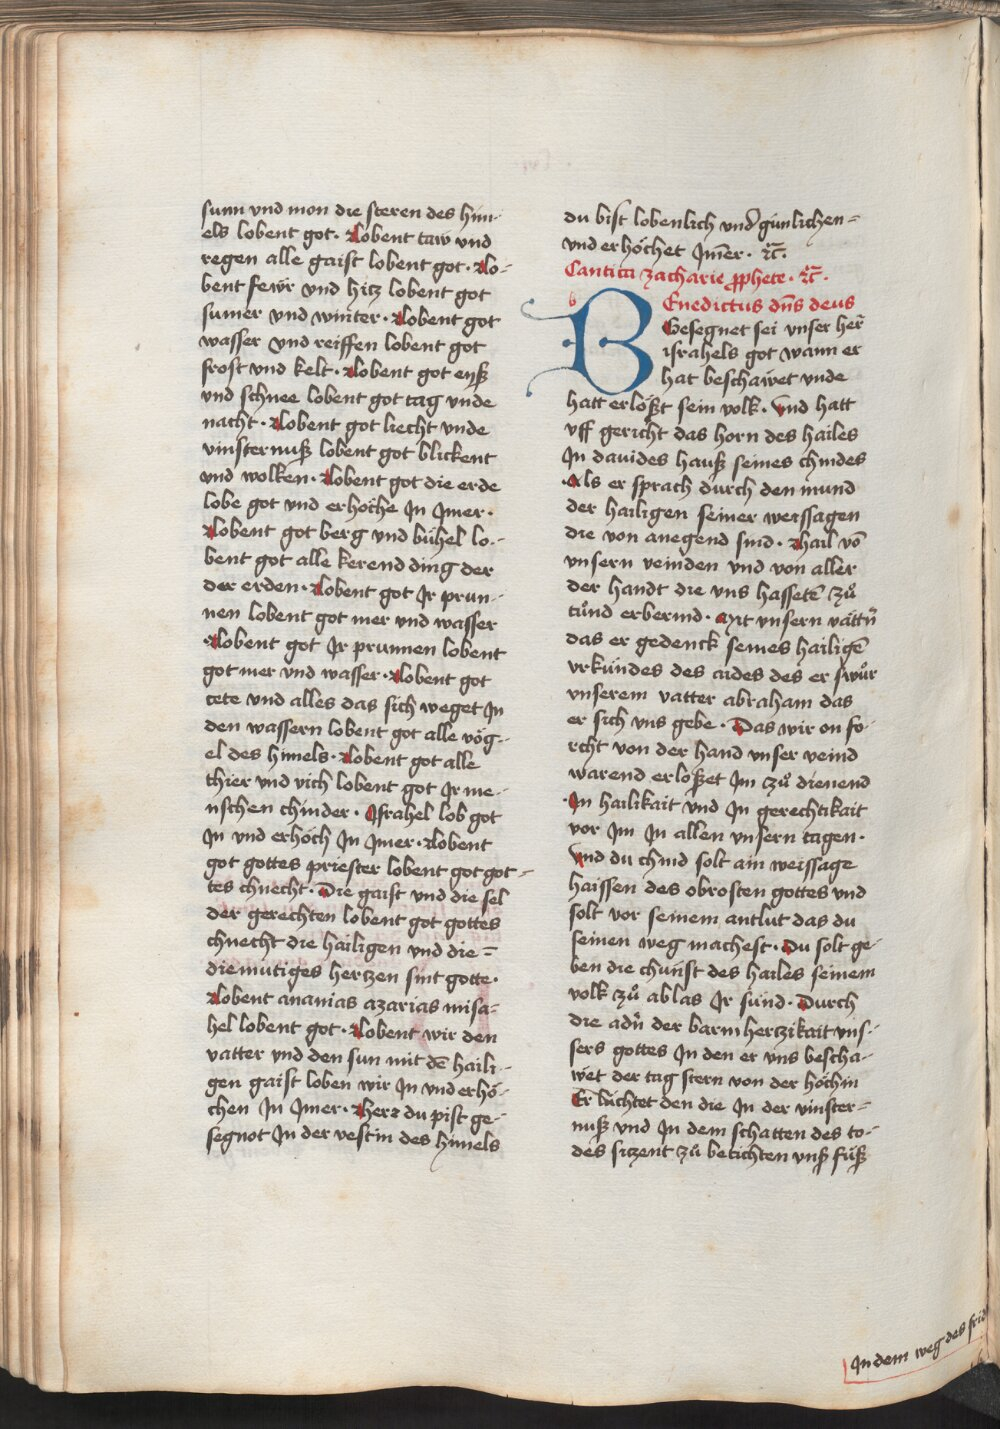 sunn vnd mon die steren des him-
els lobent got· Lobent taw vnd
regen alle gaist lobent got· Lo-
bent fewr vnd hitz lobent got
sumer vnd winter· Lobent got
wasser vnd reiffen lobent got
frost vnd kelt· Lobent got eyß
vnd schnee lobent got tag vnde
nacht· Lobent got liecht vnde
vinsternuß lobent got blickent
vnd wolken· Lobent got die erde
lobe got vnd erhöche In Imer·
Lobent got berg vnd bühel lo-
bent got alle kerend ding der
der erden· Lobent got Ir prun-
nen lobent got mer vnd wasser
Lobent got Ir prunnen lobent
got mer vnd wasser· Lobent got
cete vnd alles das sich weget In
den wassern lobent got alle vög-
el des himels· Lobent got alle
thier vnd vich lobent got Ir me-
nschen chinder· Israhel lob got
In vnd erhöch In Imer· Lobent
got gottes priester lobent got got-
tes chnecht· Die gaist vnd die sel
der gerechten lobent got gottes
chnecht die hailigen vnd die-
diemutiges hertzen sint gotte·
Lobent ananias azarias misa-
hel lobent got· Lobent wir den
vatter vnd den sun mit dē haili-
gen gaist loben wir In vnd erhö-
chen In Imer· Herr du pist ge-
segnot In der vestin des himels
du bist lobenlich vnd günlichen-
vnd erhöchet Im̄er· ꝛc̄·
Cantica zacharie ꝓphete· ꝛc̄·
BEnedictus dn̄s deus
Gesegnet sei vnser her̄
israhels got wann er
hat beschawet vnde
hatt erlößt sein volk· Vnd hatt
vff gericht das horn des hailes
In dauides hauß seines chindes
Als er sprach durch den mund
der hailigen seiner weissagen
die von anegend sind· Hail vō
vnsern veinden vnd von aller
der handt die vns hassetē zů
tůnd erbermd· Mit vnsern vättn̄
das er gedenck seines hailigē
vrkundes des aides des er swůr
vnserem vatter abraham das
er sich vns gebe· Das wir on fo-
rcht von der hand vnser veind
warend erloßet Im zů dienend
In hailikait vnd In gerechtikait
vor Im In allen vnsern tagen·
Vnd du chind solt ain weissage
haissen des obrosten gottes vnd
solt vor seinem antlut das du
seinen weg machest· Du solt ge-
ben die chunst des hailes seinem
volk zů ablas Ir sünd· Durch
die adn̄ der barmhertzikait vns-
sers gottes In den er vns bescha-
wet der tag stern von der höchin
Er lüchtet den die In der vinster-
nuß vnd In dem schatten des to-
des sitzent zů betichten vnß füß
In dem weg des frid